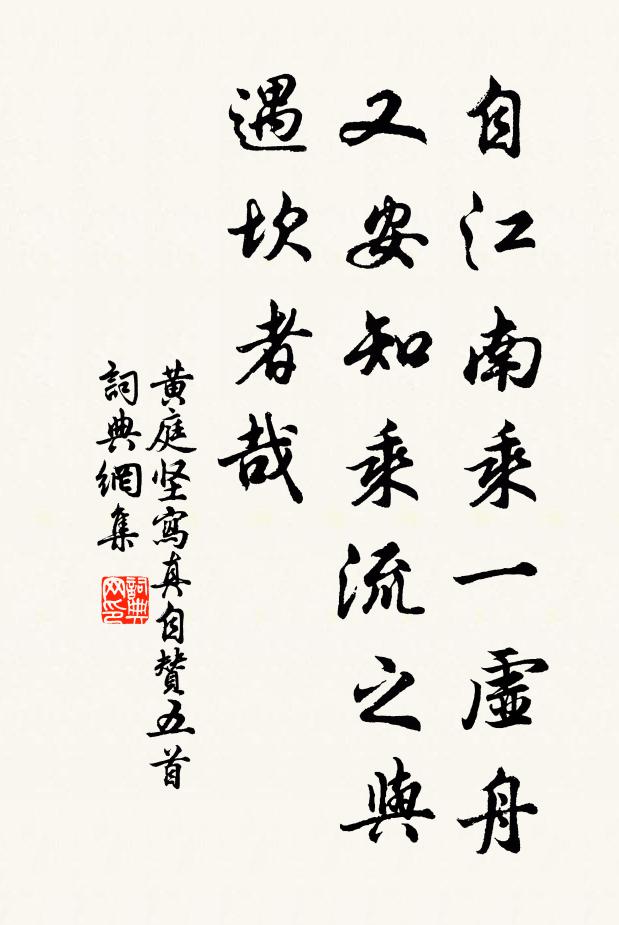 自江南乘一虛舟
又安知乘流之與
遇坎者哉
黃庭坚寫真自贊五首
詞典網集
詞典网印